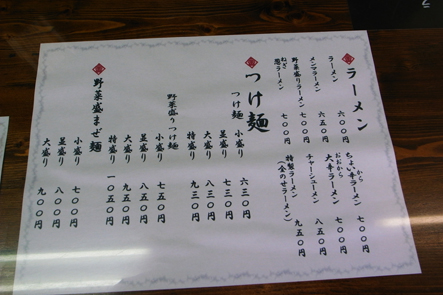 ラーメン
ラーメン 六〇〇円
メンマラーメン 六五〇円
野菜盛りラーメン 七〇〇円
ねぎラーメン 七〇〇円
ちょい辛ラーメン 七〇〇円
から
大辛ラーメン 七〇〇円
おおから
チャーシューメン 八五〇円
特製ラーメン 九五〇円
(全のせラーメン)
つけ麺
つけ麺
小盛り 六三〇円
並盛り 七三〇円
大盛り 八三〇円
特盛り 九三〇円
野菜盛りつけ麺
小盛り 七五〇円
並盛り 八五〇円
大盛り 九五〇円
特盛り 一〇五〇円
野菜盛まぜ麺
小盛り 七〇〇円
並盛り 八〇〇円
大盛り 九〇〇円